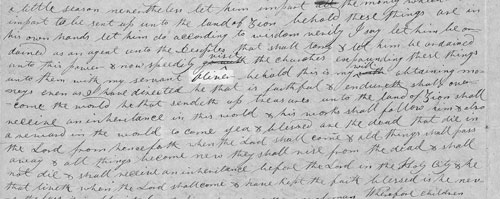 a little season nevertheless let him impart the money which
impart to be sent up unto the land of Zion behold these things are in
his own hands let him do according to wisdom verily I say let him be or
dained as an agent unto the Desiples that shall tarry & let him be ordained
unto this power & now speedily visit the churches expounding these things
unto them with my servant Oliver behold this is my obtaining mo
neys even as I have directed he that is faithful & endureth shall over
come the world he that sendeth up treasures unto the land of Zion shall
receive an inheritance in this world & his works shall follow him & also
a reward in the world to come yea & blessed are the dead that die in
the Lord from henceforth when the Lord shall come & old things shall pass
away & all things become new they shall rise from the dead & shall
not die & shall receive an inheritance before the Lord in the Holy City & he
that liveth when the Lord shall come & have kept the faith blessed is he nev
Wherefore children